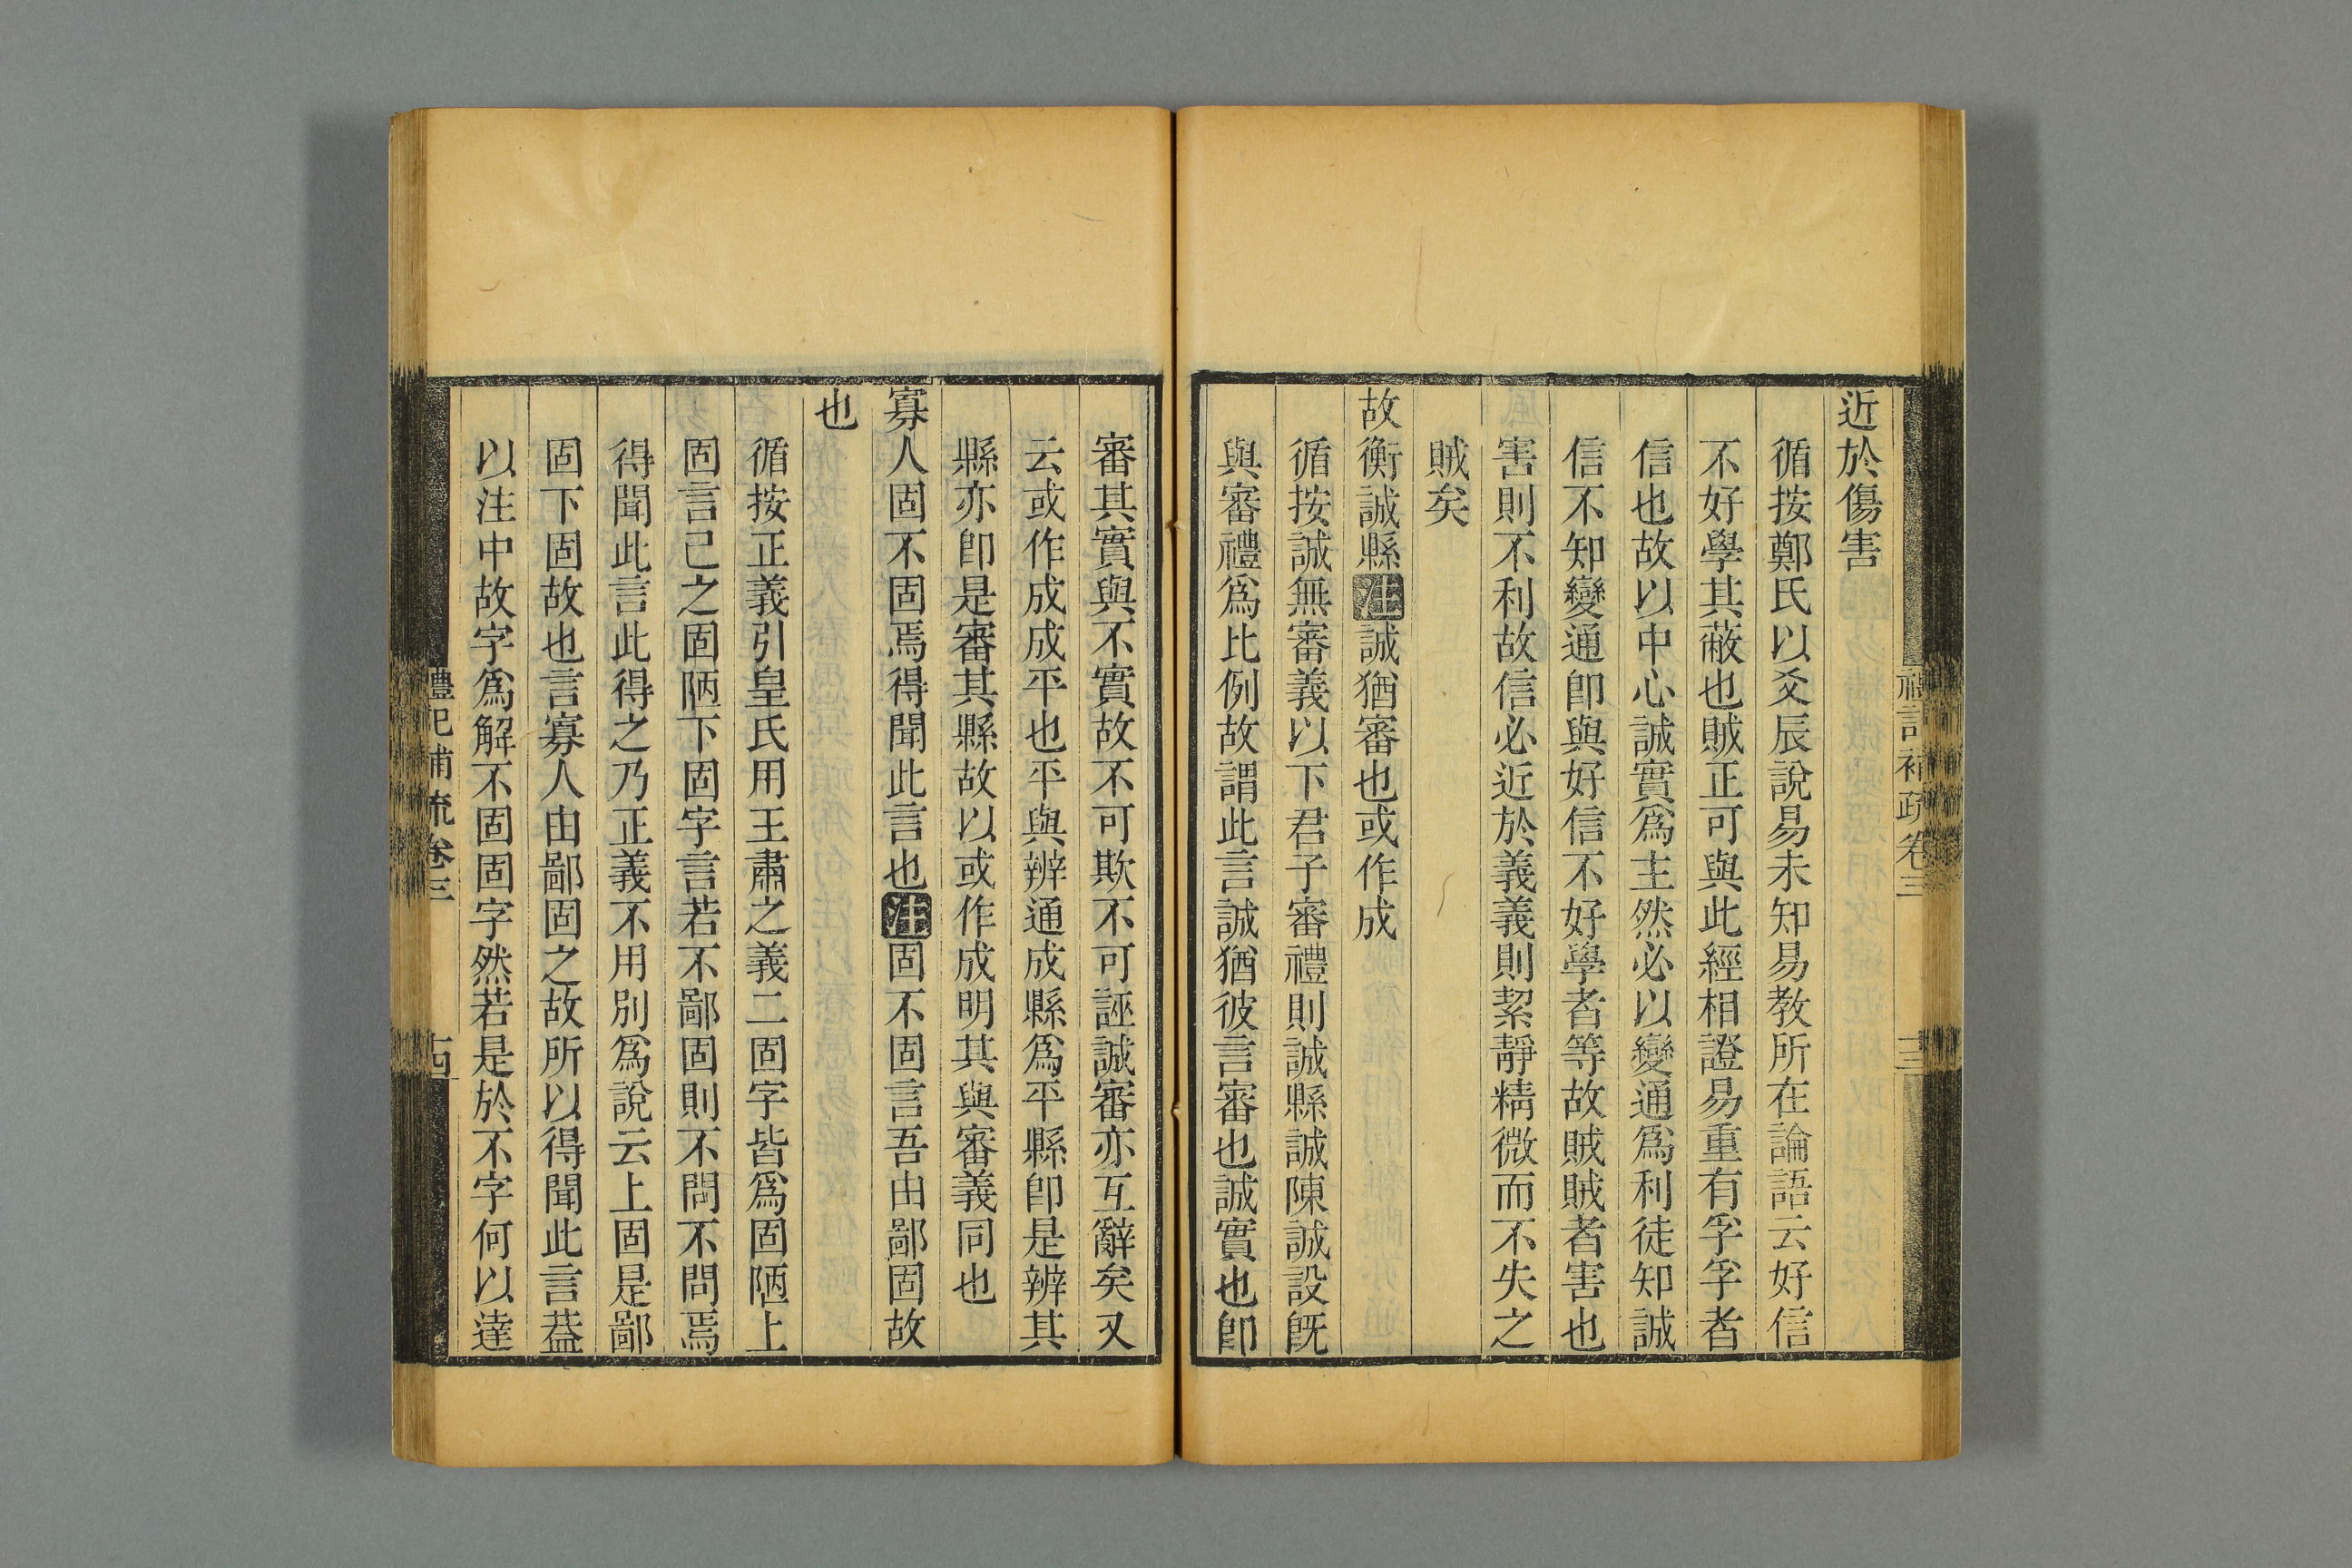 近於傷害
循按鄭氏以爻辰說易未知易教所在論語云好信
不好學其蔽也賊正可與此經相證易重有孚孚者
信也故以中心誠實爲主然必以變通爲利徒知誠
信不知變通卽與好信不好學者等故賊賊者害也
害則不利故信必近於義義則絜靜精微而不失之
賊矣
故衡誠縣注誠猶審也或作成
循按誠無審義以下君子審禮則誠縣誠陳誠設旣
與審禮爲比例故謂此言誠猶彼言審也誠實也卽
禮記補疏卷三
十三
審其實與不實故不可欺不可誣誠審亦互辭矣又
云或作成成平也平與辨通成縣爲平縣卽是辨其
縣亦卽是審其縣故以或作成明其與審義同也
寡人固不固焉得聞此言也注固不固言吾由鄙固故
也
循按正義引皇氏用王肅之義二固字皆爲固陋上
固言己之固陋下固字言若不鄙固則不問不問焉
得聞此言此得之乃正義不用別爲說云上固是鄙
固下固故也言寡人由鄙固之故所以得聞此言葢
以注中故字爲解不固固字然若是於不字何以達
禮記補疏卷三
十四